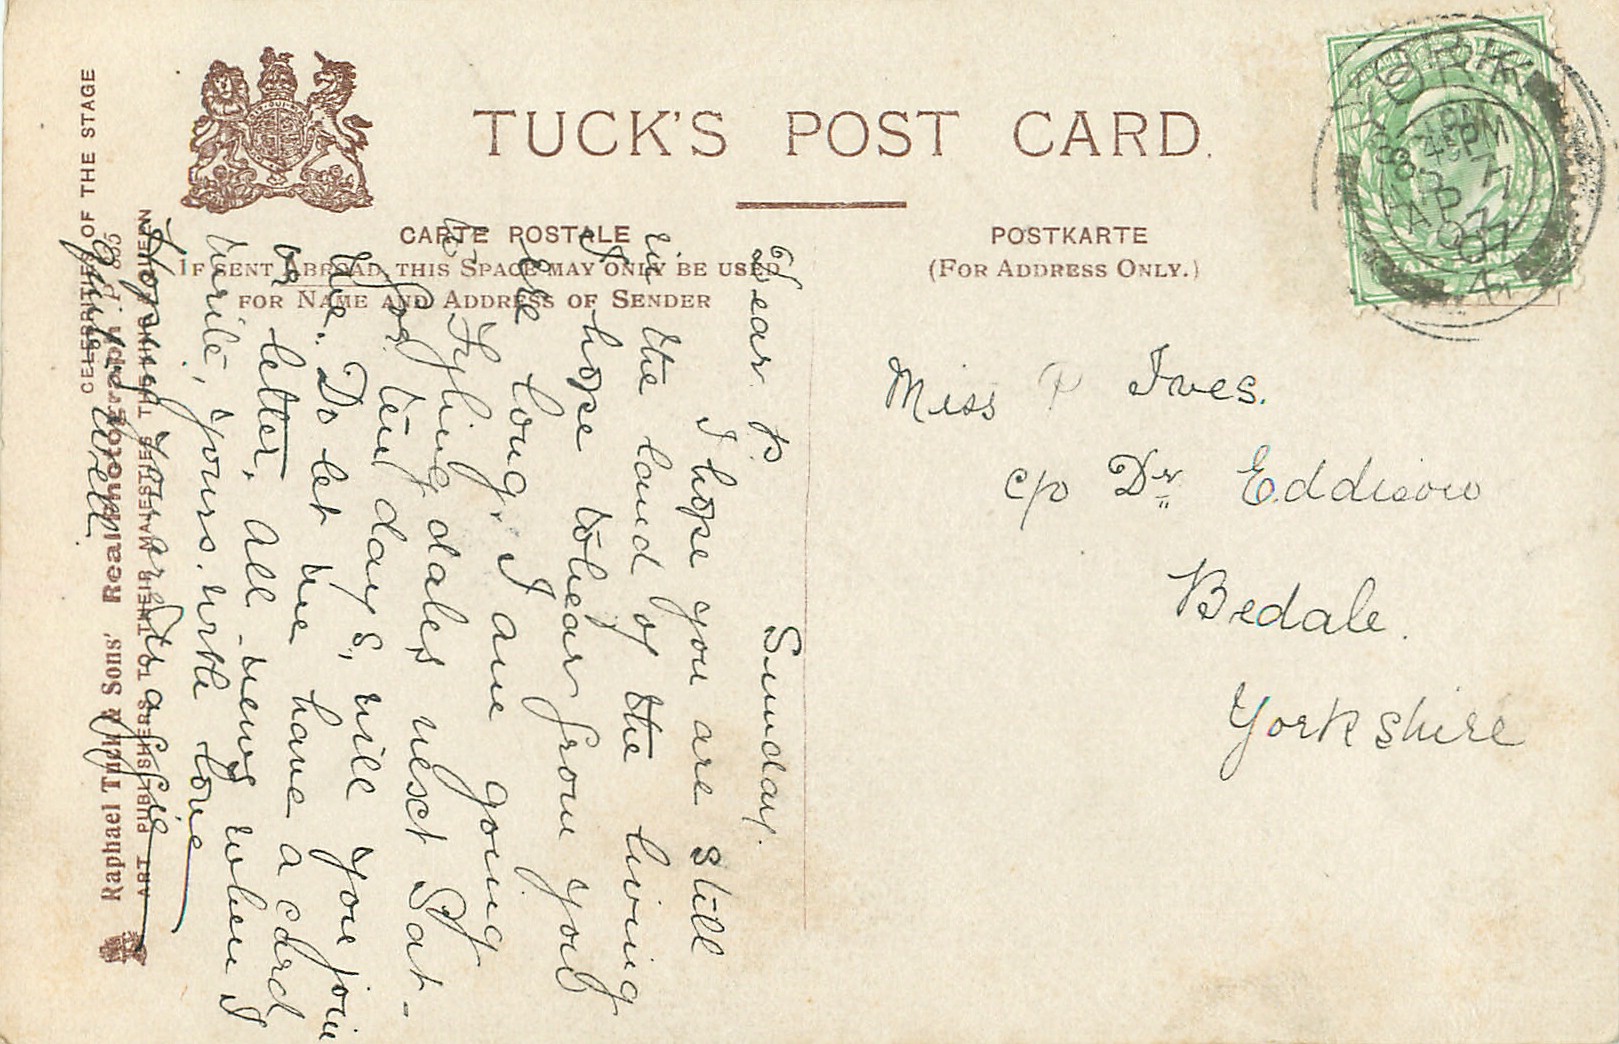 TUCK'S POST CARD.
CARTE POSTALE
IF SENT ABROAD, THIS SPACE MAY ONLY BE USED
FOR NAME AND ADDRESS OF SENDER
POSTKARTE
(FOR ADDRESS ONLY.)
YORK
8 45 PM
AP 7
07
4
CELEBRITIES OF THE STAGE
Raphael Tuck & Sons' Real Photograph P.
ART PUBLISHERS TO THEIR MAJESTIES THE KING QUEEN
Miss P Ives.
c/o Dr Eddison
Bedale.
Yorkshire
Sunday.
Dear P.
I hope you are still
in the land of the living
I hope to hear from you
ere long. I am going
to Fylingdales next Sat-
for ten days, will you join
me. Do let me have a card
or letter, all news when I
write, yours with love
Aggie
Hoping you are
quite well